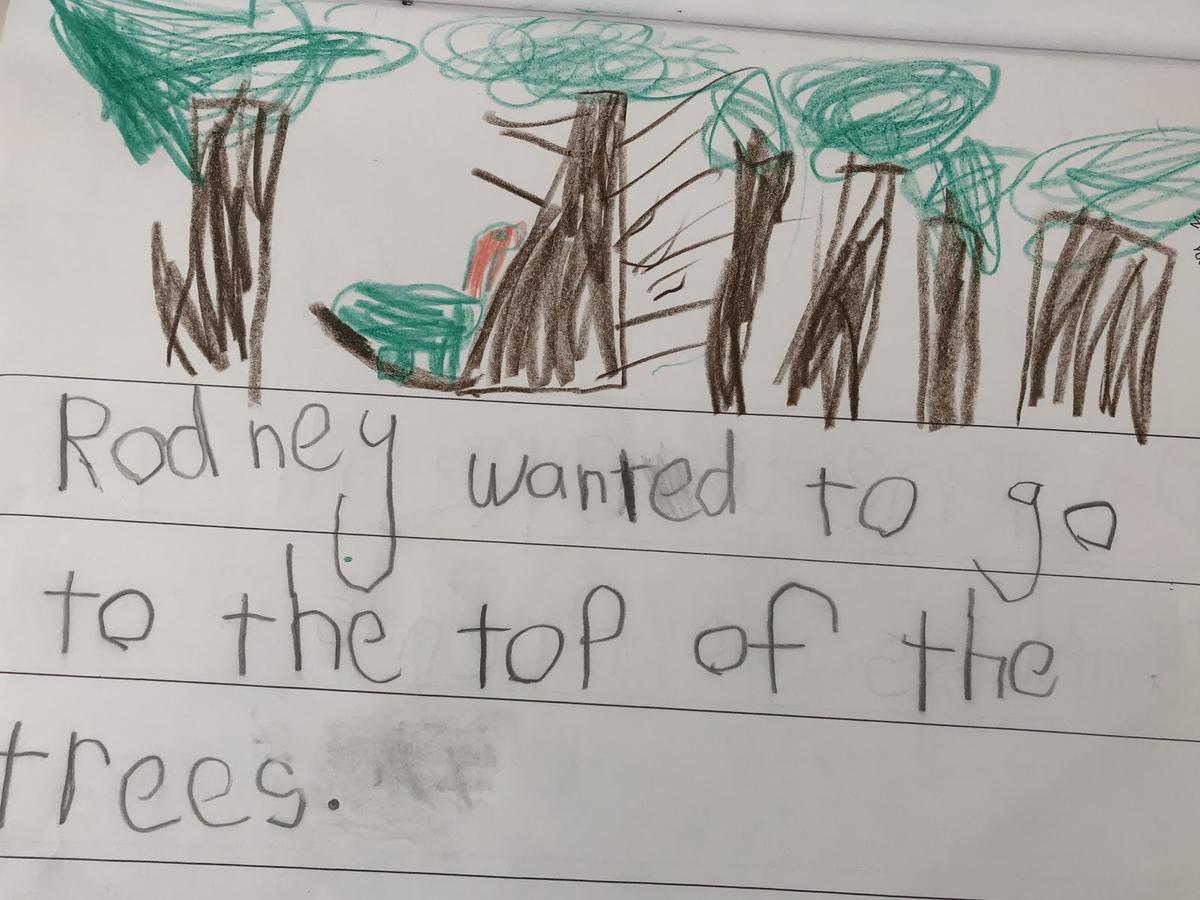 Rodney wanted to go
to the top of the
trees.